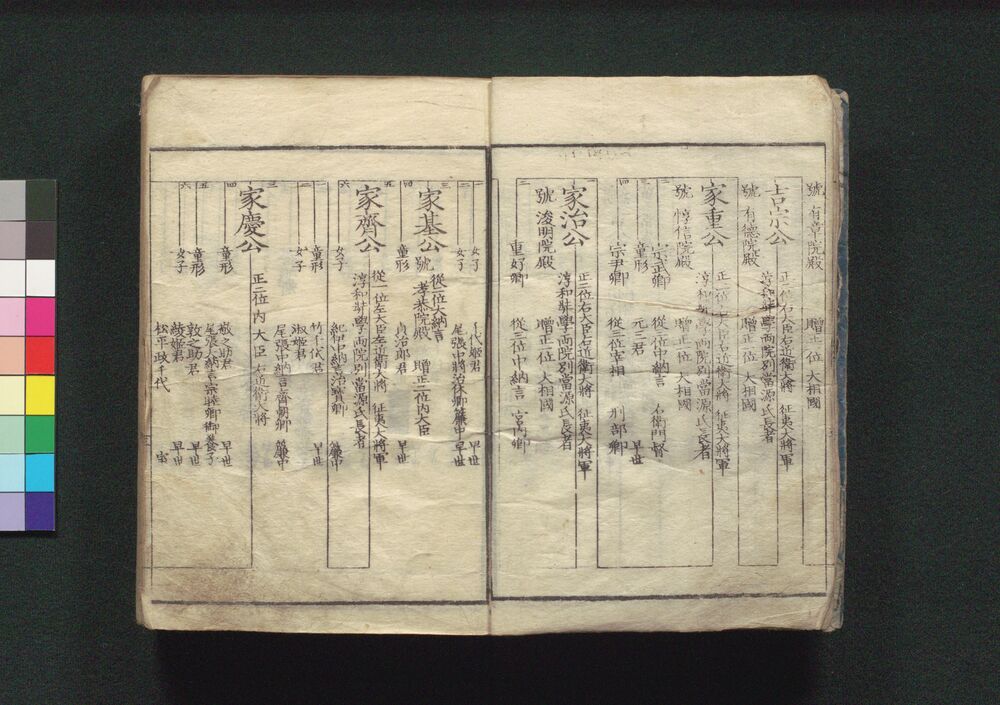 號 有章院殿 贈正一位大相國
吉宗公
正二位右大臣右近衛大將 征夷大將軍
淳和奨學両院別當源氏長者
號 有德院殿 贈正一位大相國
家重公
正二位右大臣右近衛大將 征夷大將軍
淳和奨學両院別當源氏長者
號 惇信院殿 贈正一位大相國
三
宗武卿 從三位中納言 右衛門督
童形 元三君 早世
四
宗尹卿 從三位宰相 刑部卿
一
家治公
正二位右大臣右近衛大將 征夷大將軍
淳和奨學両院別當源氏長者
號 浚明院殿 贈正一位大相國
二
重好卿 從三位中納言 宮内卿
一
女子 千代姬君 早世
二
女子 尾張中將治休卿簾中 早世
三
家基公
從二位大納言
號 孝恭院殿 贈正二位内大臣
四
童形 貞治郎君 早世
五
家齊公
從一位左大臣左近衛大將 征夷大將軍
淳和奨學両院別當源氏長者
六
女子 紀中納言治寶卿 簾中
一
童形 竹千代君 早世
二
女子 淑姬君
尾張中納言齊朝卿 簾中
三
家慶公
正二位内大臣 右近衛大將
四
童形 敬之助君 早世
尾張大納言宗睦卿御養子
五
童形 敦之助君 早世
六
女子 綾姬君 早世
松平政千代 室